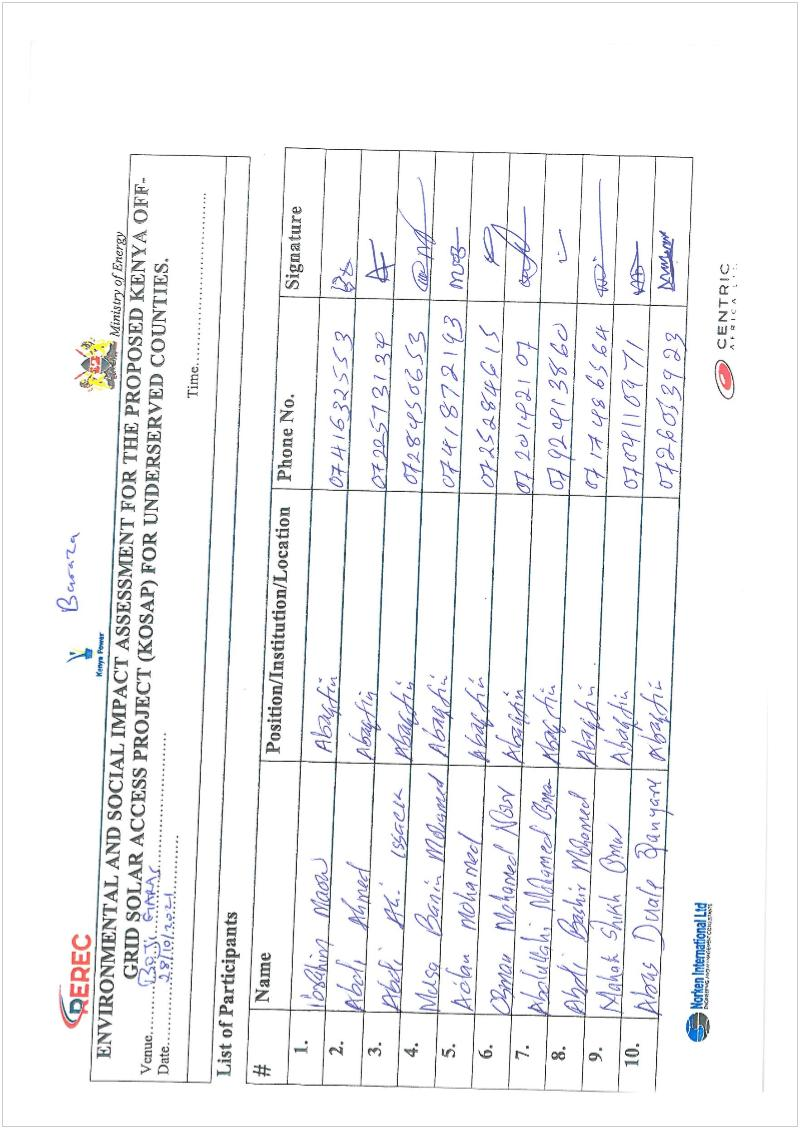 REREC
Kenya Power
Baraza
Ministry of Energy
ENVIRONMENTAL AND SOCIAL IMPACT ASSESSMENT FOR THE PROPOSED KENYA OFF-
GRID SOLAR ACCESS PROJECT (KOSAP) FOR UNDERSERVED COUNTIES.
Venue
Date 28/10/2021 Time
List of Participants
# Name Position/Institution/Location Phone No. Signature
1. Ibrahim Maow Abaqfin 0741632553
2. Abdi Ahmed Abaqfin 0722573130
3. Abdi Ali Issack Abaqfin 0728450653
4. Mohamed Abaqfin 0741872193
5. Adan Mohamed Abaqfin 0725284615
6. Osman Mohamed Noor Abaqfin 0720142107
7. Abdullahi Mohamed Omar Abaqfin 0792413860
8. Abdi Bashir Mohamed Abaqfin 0717486564
9. Mahat Shikh Omar Abaqfin 0704110971
10. Abas Dulale Abaqfin 0726053923
Norken International Ltd
CENTRIC
AFRICA LTD.